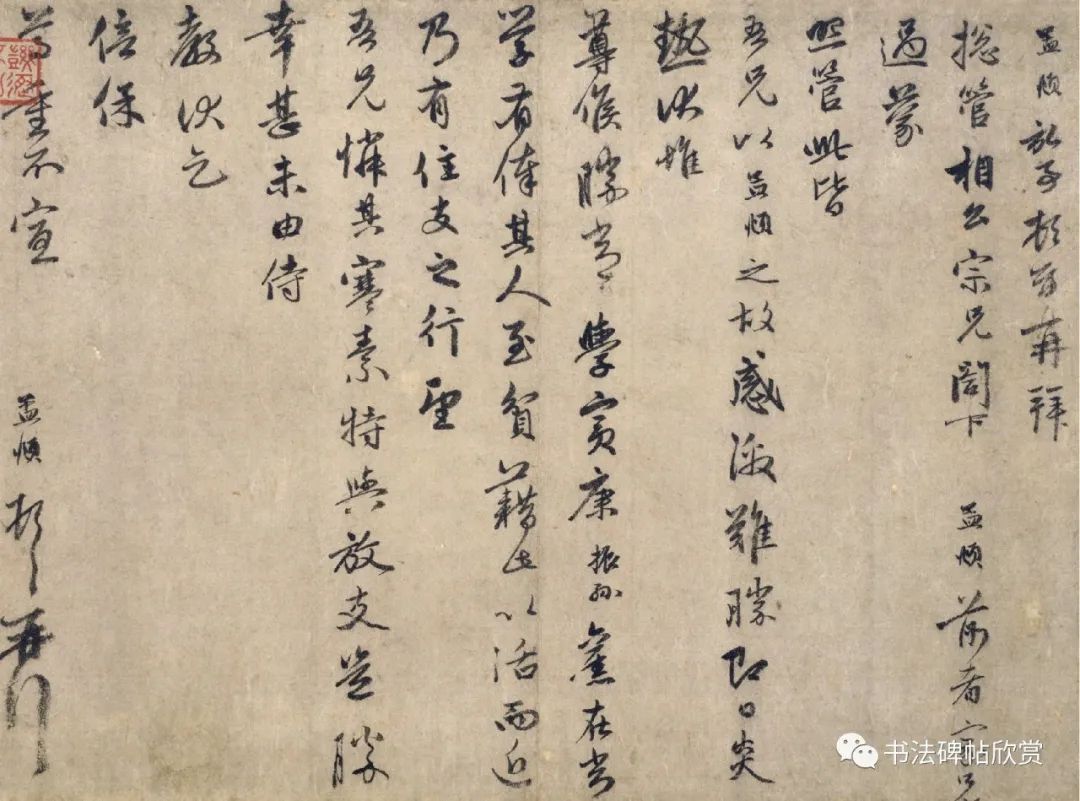 孟頫放子頓首再拜
總管相公宗兄閣下 孟頫前者宗兄
過蒙
照管此皆
吾兄以孟頫之故感激難勝即日炎
熱伏惟
尊候勝常學賓康振孫舊在
學有俸其人至貧藉此以活而近
乃有住支之行望
吾兄憐其寒素特與放支豈勝
幸甚未由侍
教伏乞
倍保
尊重不宣 孟頫頓首再拜
书法碑帖欣赏